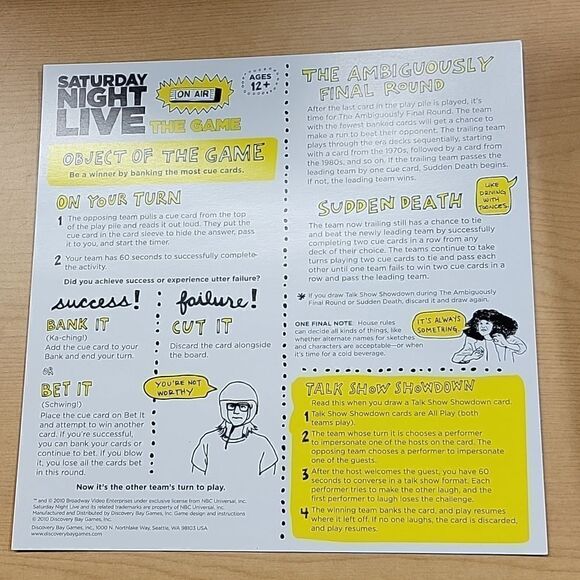 SATURDAY
NIGHT
LIVE
ON AIR
THE GAME
AGES
12+
OBJECT OF THE GAME
Be a winner by banking the most cue cards.
ON YOUR TURN
1 The opposing team pulls a cue card from the top
of the play pile and reads it out loud. They put the
cue card in the card sleeve to hide the answer, pass
it to you, and start the timer.
2 Your team has 60 seconds to successfully complete
the activity.
Did you achieve success or experience utter failure?
success!
BANK IT
(Ka-ching!)
Add the cue card to your
Bank and end your turn.
OR
BET IT
(Schwing!)
Place the cue card on Bet It
and attempt to win another
card. If you're successful,
you can bank your cards or
continue to bet. If you blow
it, you lose all the cards bet
in this round.
failure!
CUT IT
Discard the card alongside
the board.
YOU'RE NOT
WORTHY
Now it's the other team's turn to play.
™ and © 2010 Broadway Video Enterprises under exclusive license from NBC Universal, Inc.
Saturday Night Live and its related trademarks are property of NBC Universal, Inc.
Manufactured and Distributed by Discovery Bay Games, Inc. Game design and instructions
© 2010 Discovery Bay Games, Inc.
Discovery Bay Games, Inc., 1000 N. Northlake Way, Seattle, WA 98103 USA
www.discoverybaygames.com
THE AMBIGUOUSLY
FINAL ROUND
After the last card in the play pile is played, it's
time for The Ambiguously Final Round. The team
with the fewest banked cards will get a chance to
make a run to beat their opponent. The trailing team
plays through the era decks sequentially, starting
with a card from the 1970s, followed by a card from
the 1980s, and so on. If the trailing team passes the
leading team by one cue card, Sudden Death begins.
If not, the leading team wins.
LIKE
DRIVING
WITH
TOONCES.
SUDDEN DEATH
The team now trailing still has a chance to tie
and beat the newly leading team by successfully
completing two cue cards in a row from any
deck of their choice. The teams continue to take
turns playing two cue cards to tie and pass each
other until one team fails to win two cue cards in a
row and pass the leading team.
* If you draw Talk Show Showdown during The Ambiguously
Final Round or Sudden Death, discard it and draw again.
ONE FINAL NOTE: House rules
can decide all kinds of things, like
whether alternate names for sketches
and characters are acceptable—or when
it's time for a cold beverage.
IT'S ALWAYS
SOMETHING.
TALK SHOW SHOWDOWN
Read this when you draw a Talk Show Showdown card.
1 Talk Show Showdown cards are All Play (both
teams play).
2 The team whose turn it is chooses a performer
to impersonate one of the hosts on the card. The
opposing team chooses a performer to impersonate
one of the guests.
3 After the host welcomes the guest, you have 60
seconds to converse in a talk show format. Each
performer tries to make the other laugh, and the
first performer to laugh loses the challenge.
4 The winning team banks the card, and play resumes
where it left off. If no one laughs, the card is discarded,
and play resumes.